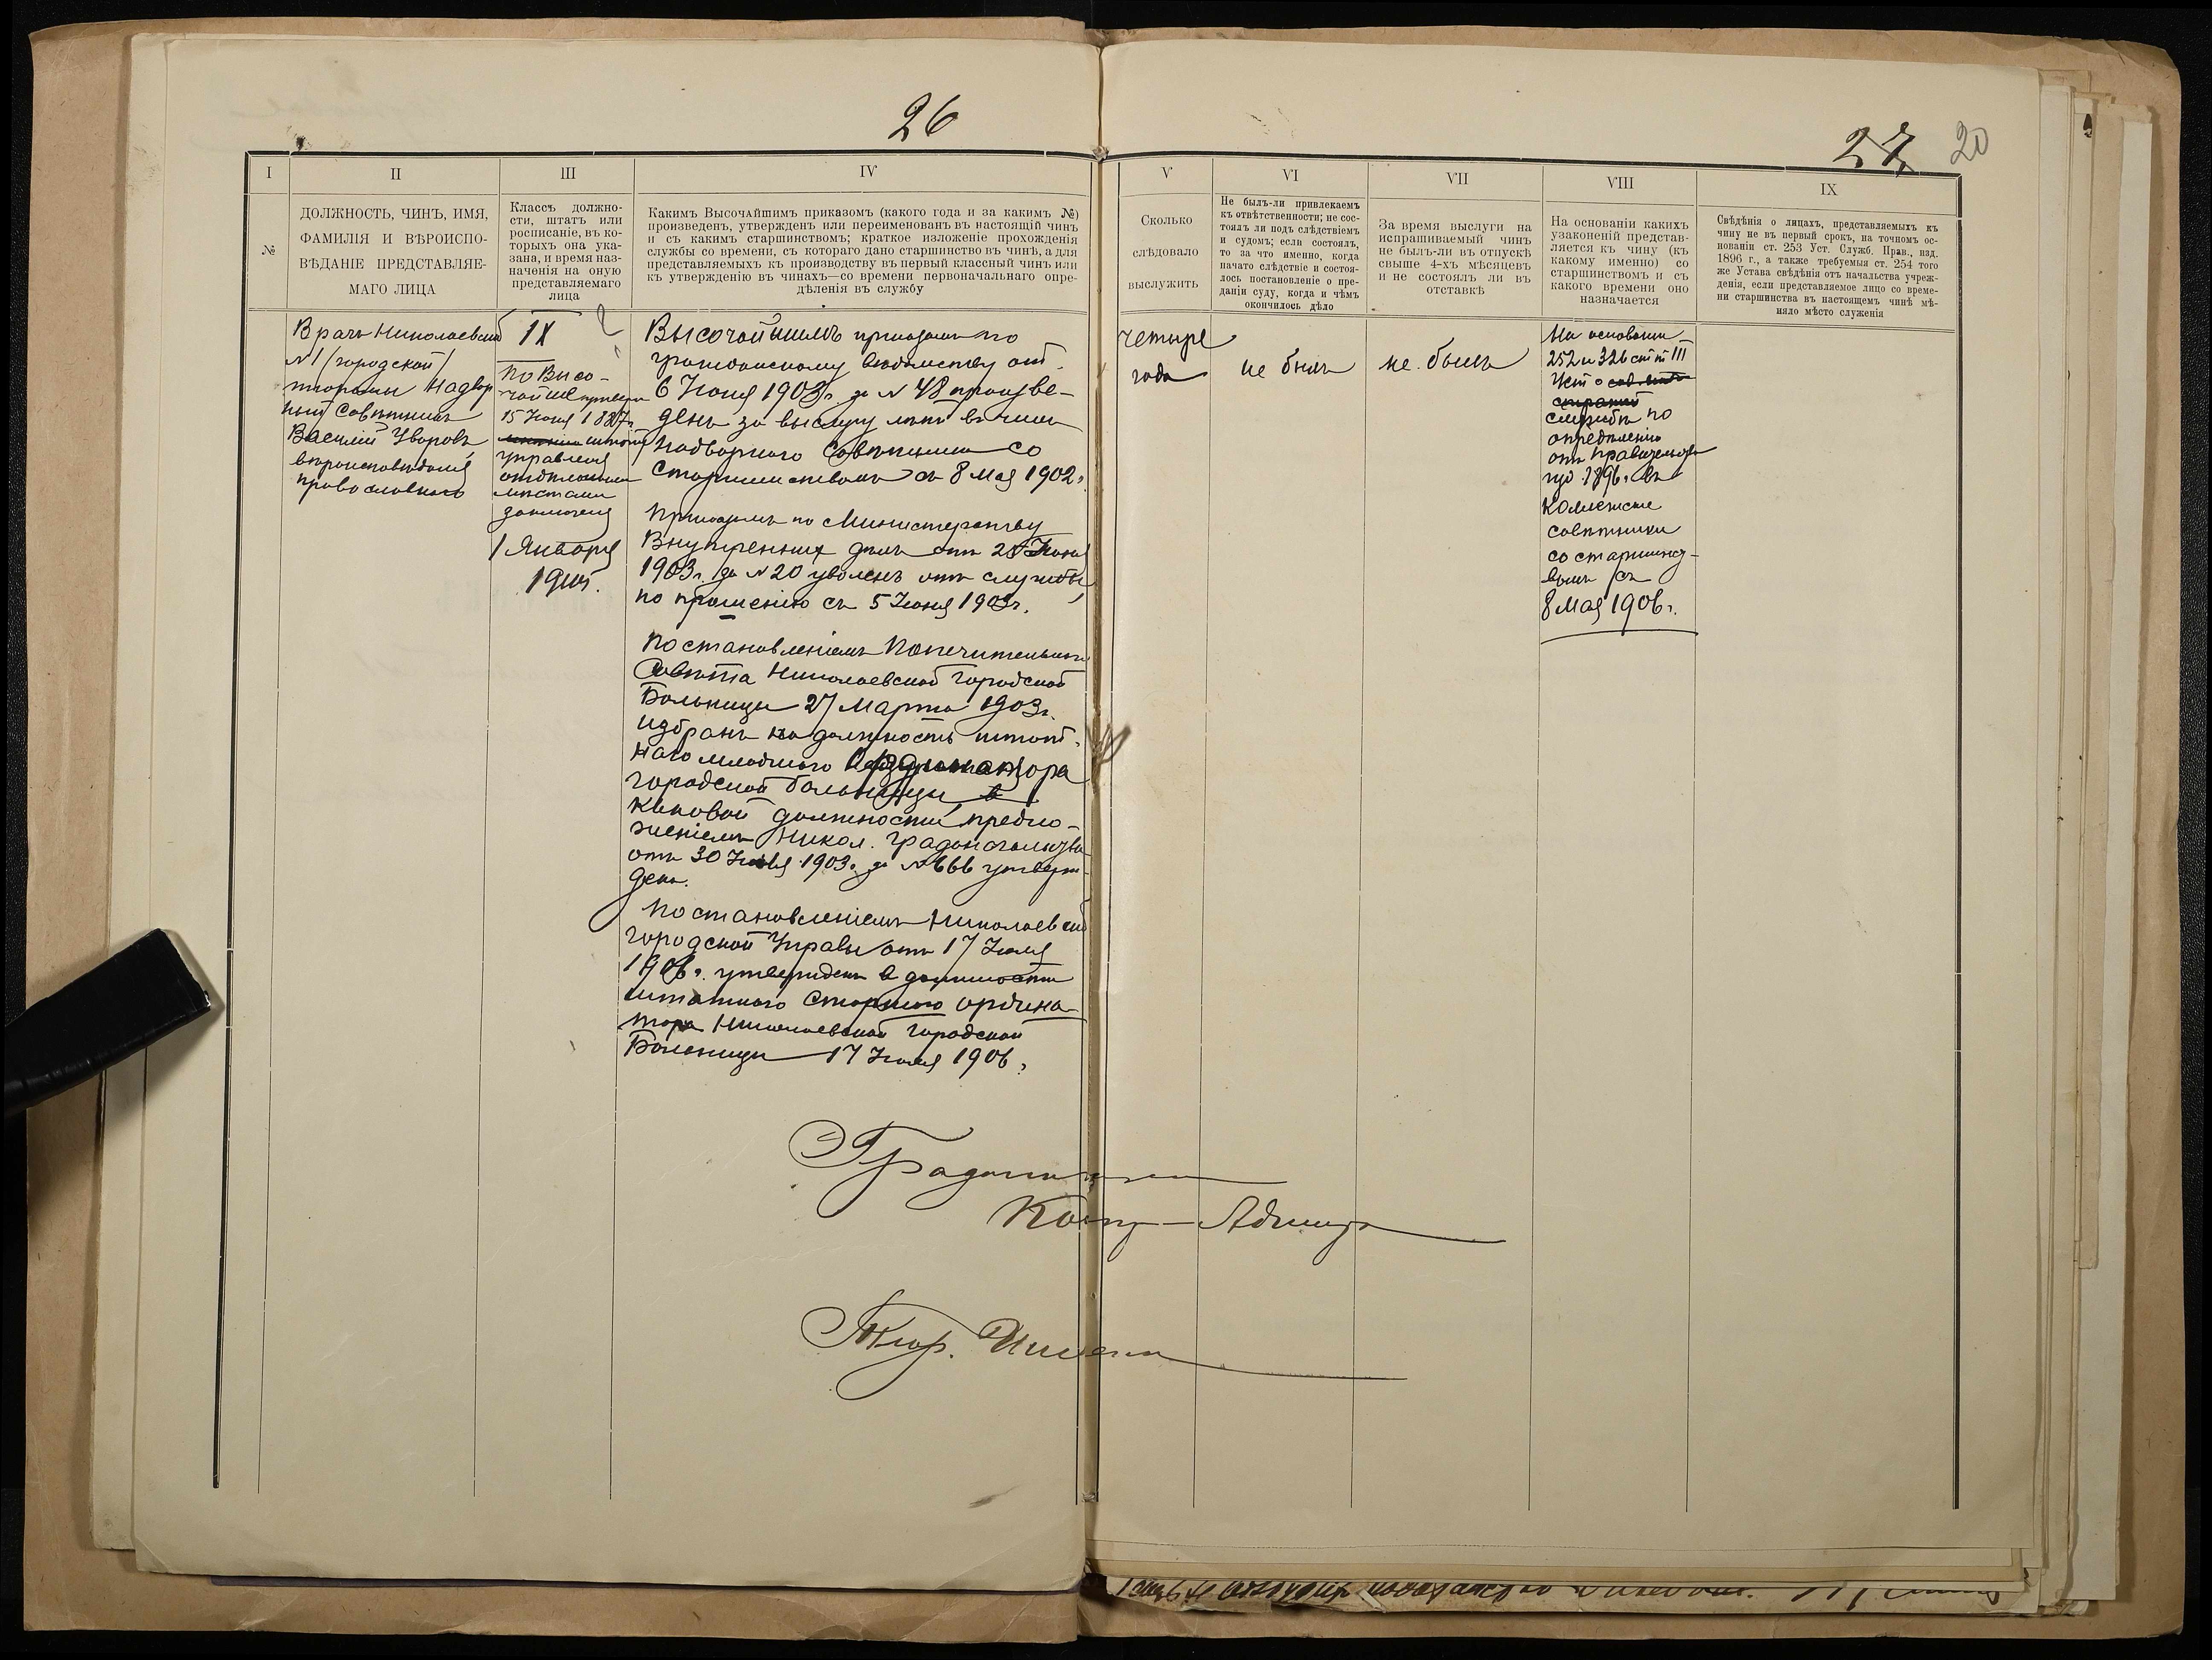 26
27
20
I
II
III
IV
V
VI
VII
VIII
IX
№
ДОЛЖНОСТЬ, ЧИНЪ, ИМЯ,
ФАМИЛІЯ И ВѢРОИСПО-
ВѢДАНІЕ ПРЕДСТАВЛЯЕ-
МАГО ЛИЦА
Классъ должно-
сти, штатъ или
росписаніе, въ ко-
торыхъ она ука-
зана, и время наз-
наченія на оную
представляемаго
лица
Какимъ Высочайшимъ приказомъ (какого года и за какимъ №)
произведенъ, утвержденъ или переименованъ въ настоящій чинъ
и съ какимъ старшинствомъ; краткое изложеніе прохожденія
службы со времени, съ котораго дано старшинство въ чинѣ, а для
представляемыхъ къ производству въ первый классный чинъ или
къ утвержденію въ чинахъ—со времени первоначальнаго опре-
дѣленія въ службу
Сколько
слѣдовало
выслужить
Не былъ-ли привлекаемъ
къ отвѣтственности; не сос-
тоялъ ли подъ слѣдствіемъ
и судомъ; если состоялъ,
то за что именно, когда
начато слѣдствіе и состоя-
лось постановленіе о пре-
даніи суду, когда и чѣмъ
окончилось дѣло
За время выслуги на
испрашиваемый чинъ
не былъ-ли въ отпускѣ
свыше 4-хъ мѣсяцевъ
и не состоялъ ли въ
отставкѣ
На основаніи какихъ
узаконеній представ-
ляется къ чину (къ
какому именно) со
старшинствомъ и съ
какого времени оно
назначается
Свѣдѣнія о лицахъ, представляемыхъ къ
чину не въ первый срокъ, на точномъ ос-
нованіи ст. 253 Уст. Служб. Прав., изд.
1896 г., а также требуемыя ст. 254 того
же Устава свѣдѣнія отъ начальства учреж-
денія, если представляемое лицо со време-
ни старшинства въ настоящемъ чинѣ мѣ-
няло мѣсто служенія
Врачъ Николаевской
№ 1 (городской)
тюрьмы Надвор
ный Совѣтникъ
Василій Уваровъ,
вѣроисповѣданія
православнаго
IX
По Высо-
чайше утверж
15 Іюня 1887 г.
управленія
отдѣльными
мѣстами
заключенія
1 Января
Высочайшимъ приказомъ по
гражданскому вѣдомству отъ
6 Іюня 1903 г. за № 48 произве-
денъ за выслугу лѣтъ въ чинъ
Надворнаго Совѣтника со
старшинствомъ съ 8 Мая 1902 г.
Приказомъ по Министерству
Внутреннихъ дѣлъ отъ 20 Іюня
1903 г. за № 20 уволенъ отъ службы
по прошенію съ 5 Іюня 1903 г.
Постановленіемъ Попечительнаго
Совѣта Николаевской городской
Больницы 27 Марта 1903 г.
избранъ на должность штат-
наго младшаго Ординатора
городской больницы, в
каковой должности предло-
женіемъ Никол. Градоначальства
отъ 30 1903 г. за № 666 утверж-
денъ.
Постановленіемъ Николаевской
городской Управы отъ 17 Іюля
1906 г. утвержденъ в должности
штатнаго Старшаго ордина-
тора Николаевской городской
Больницы 17 Іюля 1906 г.
четыре
года
не былъ
не былъ
На основаніи
252 и 326 ст. т. III
Уст о
службѣ по
опредѣленію
отъ Правительства
изд. 1896 г. въ
Коллежскіе
совѣтники
со старшинст-
вомъ съ
8 Мая 1906 г.
Градонач
Контр-Адмир
Тюр. Инспек